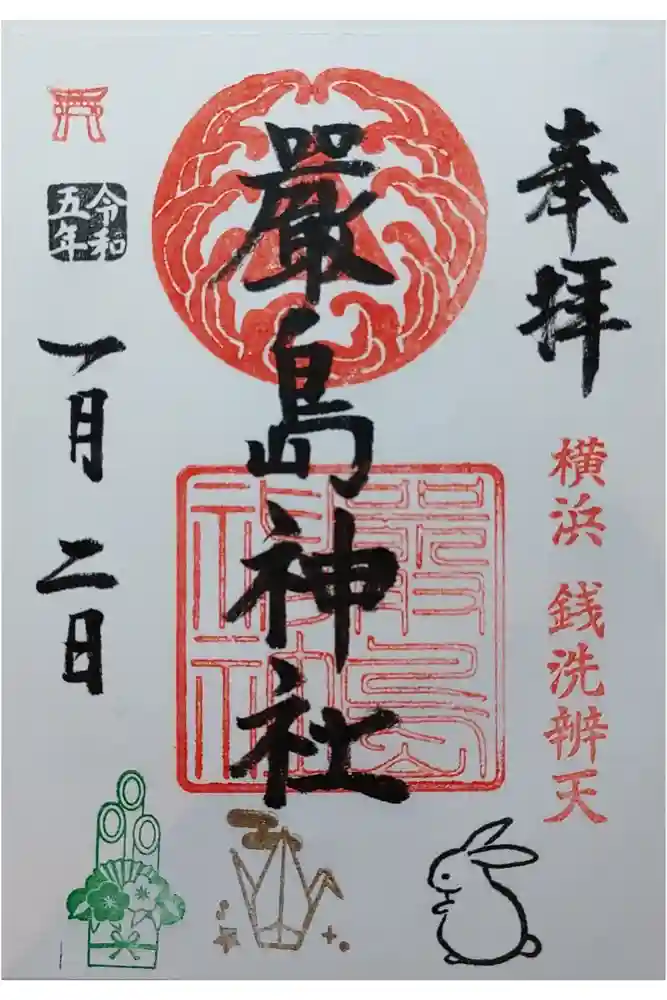 奉拝
横浜 銭洗辨天
嚴島神社
嚴島
神社
令和
五年
一月二日